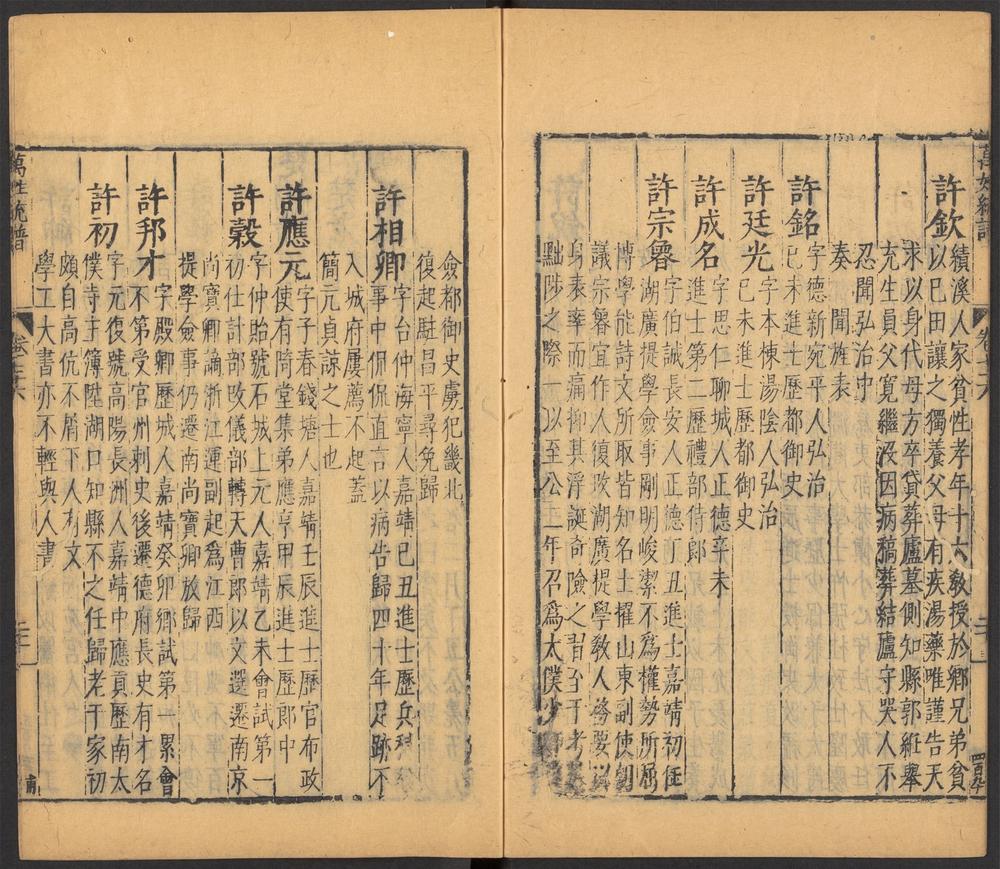 萬姓統譜
卷七十六
許欽
績溪人家貧性孝年十六敎授於鄉兄弟貧
以已田讓之獨養父母有疾湯藥唯謹告天
求以身代母方卒貸葬廬墓側知縣郭紝舉
充生員父寬繼没因病藁葬結廬守哭人不
忍聞弘治中
奏聞旌表
許銘
字德新宛平人弘治
已未進士歷都御史
許廷光
字本棟湯陰人弘治
已未進士歷都御史
許成名
字思仁聊城人正德辛未
進士第二歷禮部侍郎
許宗魯
字伯誠長安人正德丁丑進士嘉靖初任
湖廣提學僉事剛明峻潔不爲權勢所屈
博學能詩文所取皆知名士擢山東副使
議宗魯宜作人復攺湖廣提學敎人務要以
身表率而痛抑其浮誕奇險之習至于考
黜陟之際一以至公二年召爲太僕少
僉都御史虜犯畿北
復起駐昌平尋免歸
許相卿
字台仲海寧人嘉靖已丑進士歷兵科給
事中侃侃直言以病告歸四十年足跡不
入城府屢薦不起蓋
簡元貞諒之士也
許應元
字子春錢塘人嘉靖壬辰進士歷官布政
使有陭堂集弟應亨甲辰進士歷郎中
許榖
字仲貽號石城上元人嘉靖乙未會試第一
初仕計部攺儀部轉天曹郎以文選遷南京
尚寶卿謫浙江運副起爲江西
提學僉事仍遷南尚寶卿放歸
許邦才
字殿卿歷城人嘉靖癸卯鄉試第一累會
不第受官州刺史後遷德府長史有才名
許初
字元復號高陽長洲人嘉靖中應貢歷南太
僕寺主簿陞湖口知縣不之任歸老于家初
頗自高伉不屑下人人有文
學工大書亦不輕與人書
萬姓統譜
卷七十六